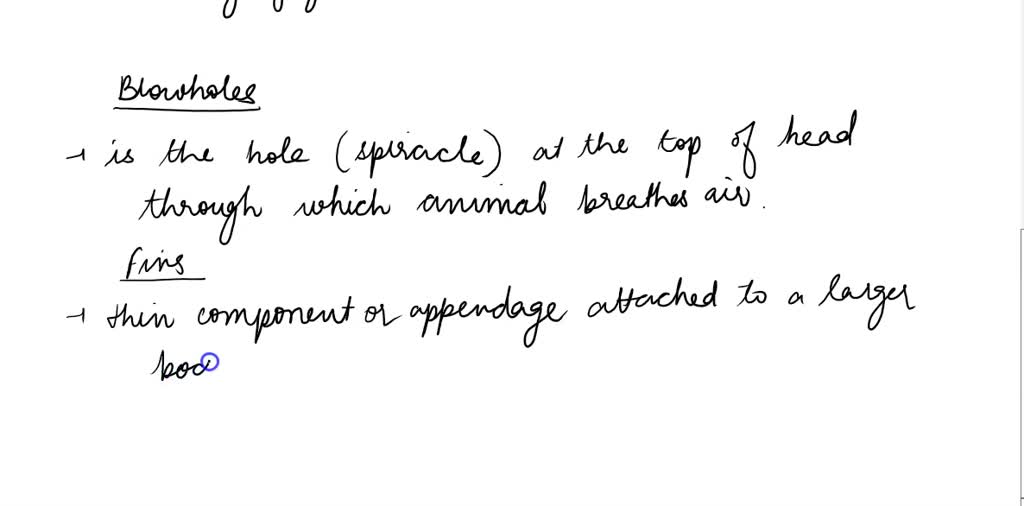 Blowholes
→ is the hole (spiracle) at the top of head
through which animal breathes air.
Fins
→ thin component or appendage attached to a larger
bod